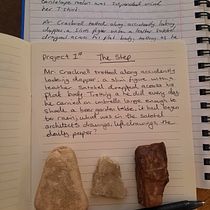 her T shirt.
Mr Cracknell trotted along accidently looking
dapper: a slim figure with a leather Satchel
dragged across his flat body,
Project 1st The Step
Mr. Cracknell trotted along accidently
looking dapper: a slim figure with a
leather Satchel dragged across his
flat body. Trotting as he did every day
he carried an umbrella large enough to
shade a beer garden table. It had begun
to rain; what was in the Satchel
architect's drawings, left drawings, the
daily paper?